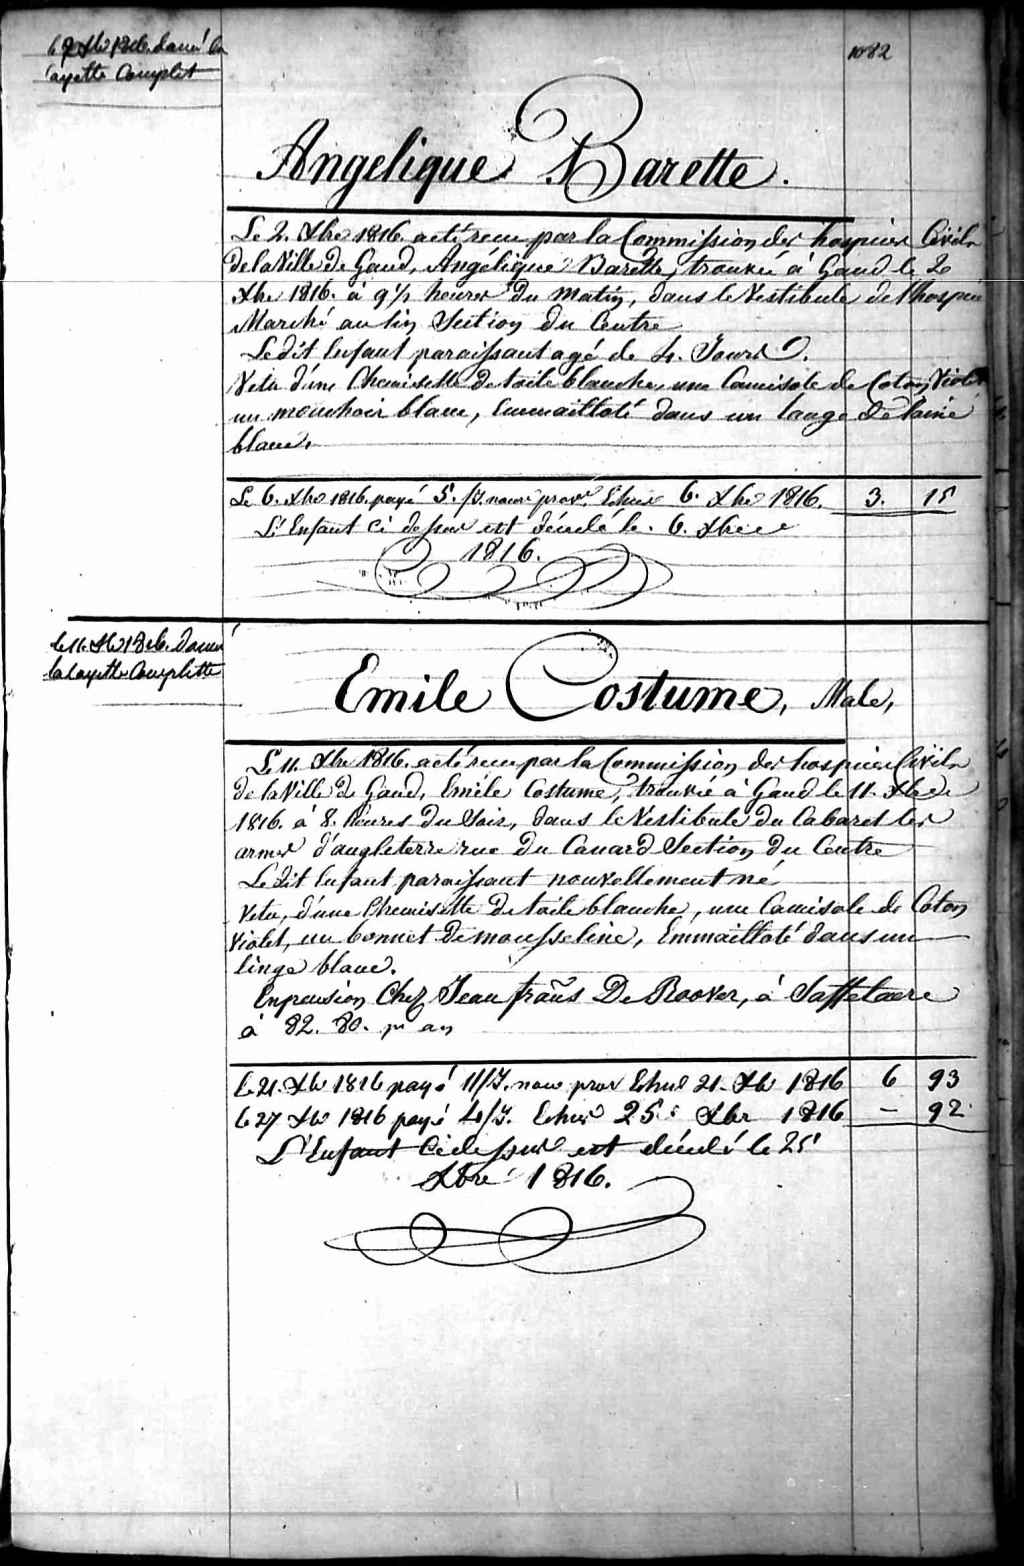 1082
le 7 Xbre 1816 donné la
layette Complet
Angelique Barette.
Le 2. Xbre 1816. a eté recu par la Commission des hospices Civils
de la Ville de Gand, Angélique Barette, trouvée à Gand le 2
Xbre 1816. à 9½ heures du matin, dans le Vestibule de l'hospice
Marché au lin Section du Centre
Ledit Enfant paraissant agé de 4. Jours.
Vetu d'une Chemisette de toile blanche, une Camisole de Coton Violet
un mouchoir blanc, Emmailloté dans un lange de laine
blanc.
Le 6. Xbre 1816. payé 5./J. nourre provre Echue 6. Xbre 1816. 3. 15
L'Enfant ci dessus est décédé le 6. Xbre
1816.
le 11. Xbre 1816. donné
la layette Complette
Emile Costume, Male,
Le 11. Xbre 1816. a eté recu par la Commission des hospices Civils
de la Ville de Gand, Emile Costume, trouvée à Gand le 11. Xbre
1816. à 8. heures du Soir, dans le Vestibule du Cabaret les
armes d'angleterre rue du Canard Section du Centre
Ledit Enfant paraissant nouvellement né
Vetu, d'une Chemisette de toile blanche, une Camisole de Coton
Violet, un bonnet de mousseline, Emmailloté dans un
linge blanc.
En pension Chez Jean frans De Roover, à Saffelaere
à 82. 80. pr an
le 21. Xbre 1816 payé 11/J. nourre provre Echue 21. Xbre 1816 6 93
le 27 Xbre 1816 payé 4/J. Echue 25 Xbre 1816 - 92
L'Enfant Ci dessus est décédé le 25
Xbre 1816.